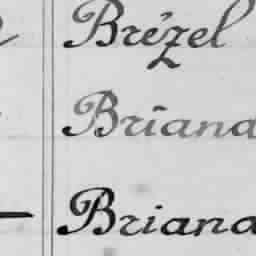 Brézel
Briand
Briand